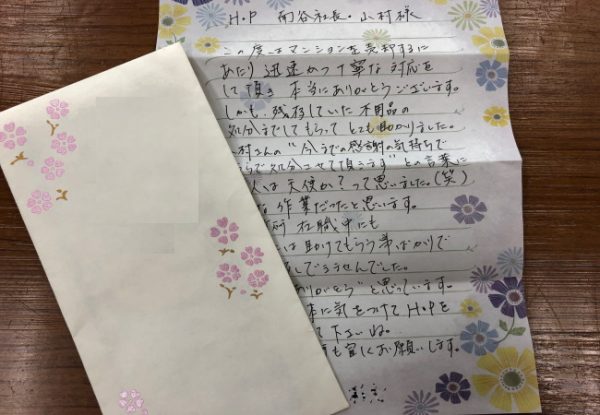 H・P 南谷社長・小村様
この度はマンションを売却するに
あたり迅速かつ丁寧な対応を
して頂き 本当にありがとうございます。
しかも、残存していた不用品の
処分までしてもらって とても助かりました。
村さんの"今までの感謝の気持ちで
で処分させて頂きます"との言葉に
人は天使か?って思いました。(笑)
な作業だったと思います。
在職中にも
は助けてもらう事ばかりで
できませんでした。
ありがとう"と思っています。
体に気をつけてH・Pを
て下さいね。
も宜しくお願いします。